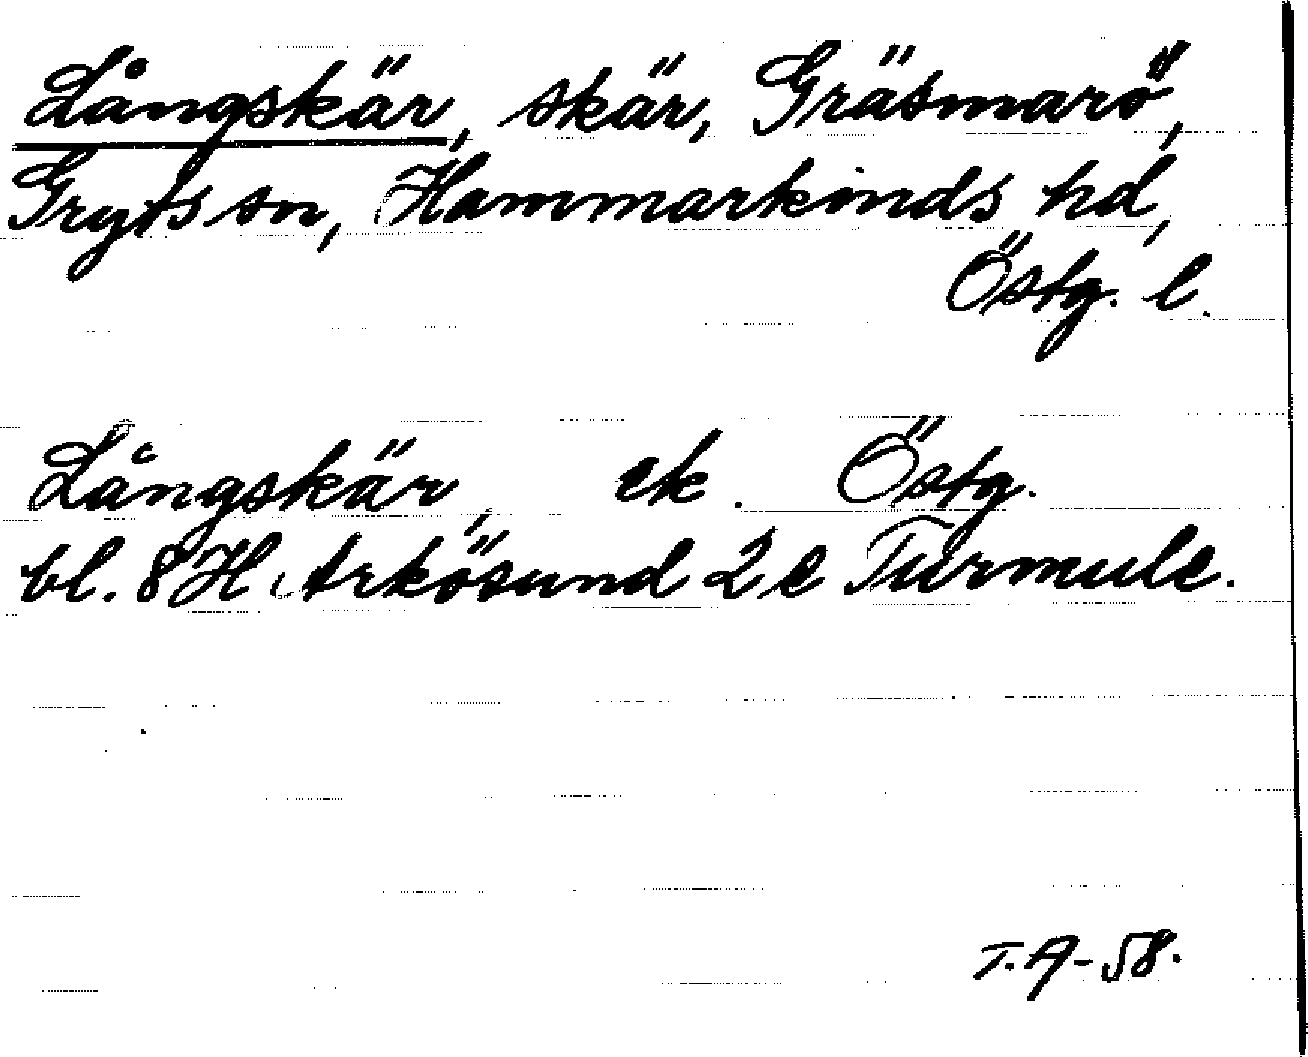 Långskär, skär, Gräsmarö,
Gryts sn, Hammarkinds hd,
Östg. l.
Långskär, ek. Östg.
bl. 8 H Arkösund 2 e Turmule.
T.A-58.